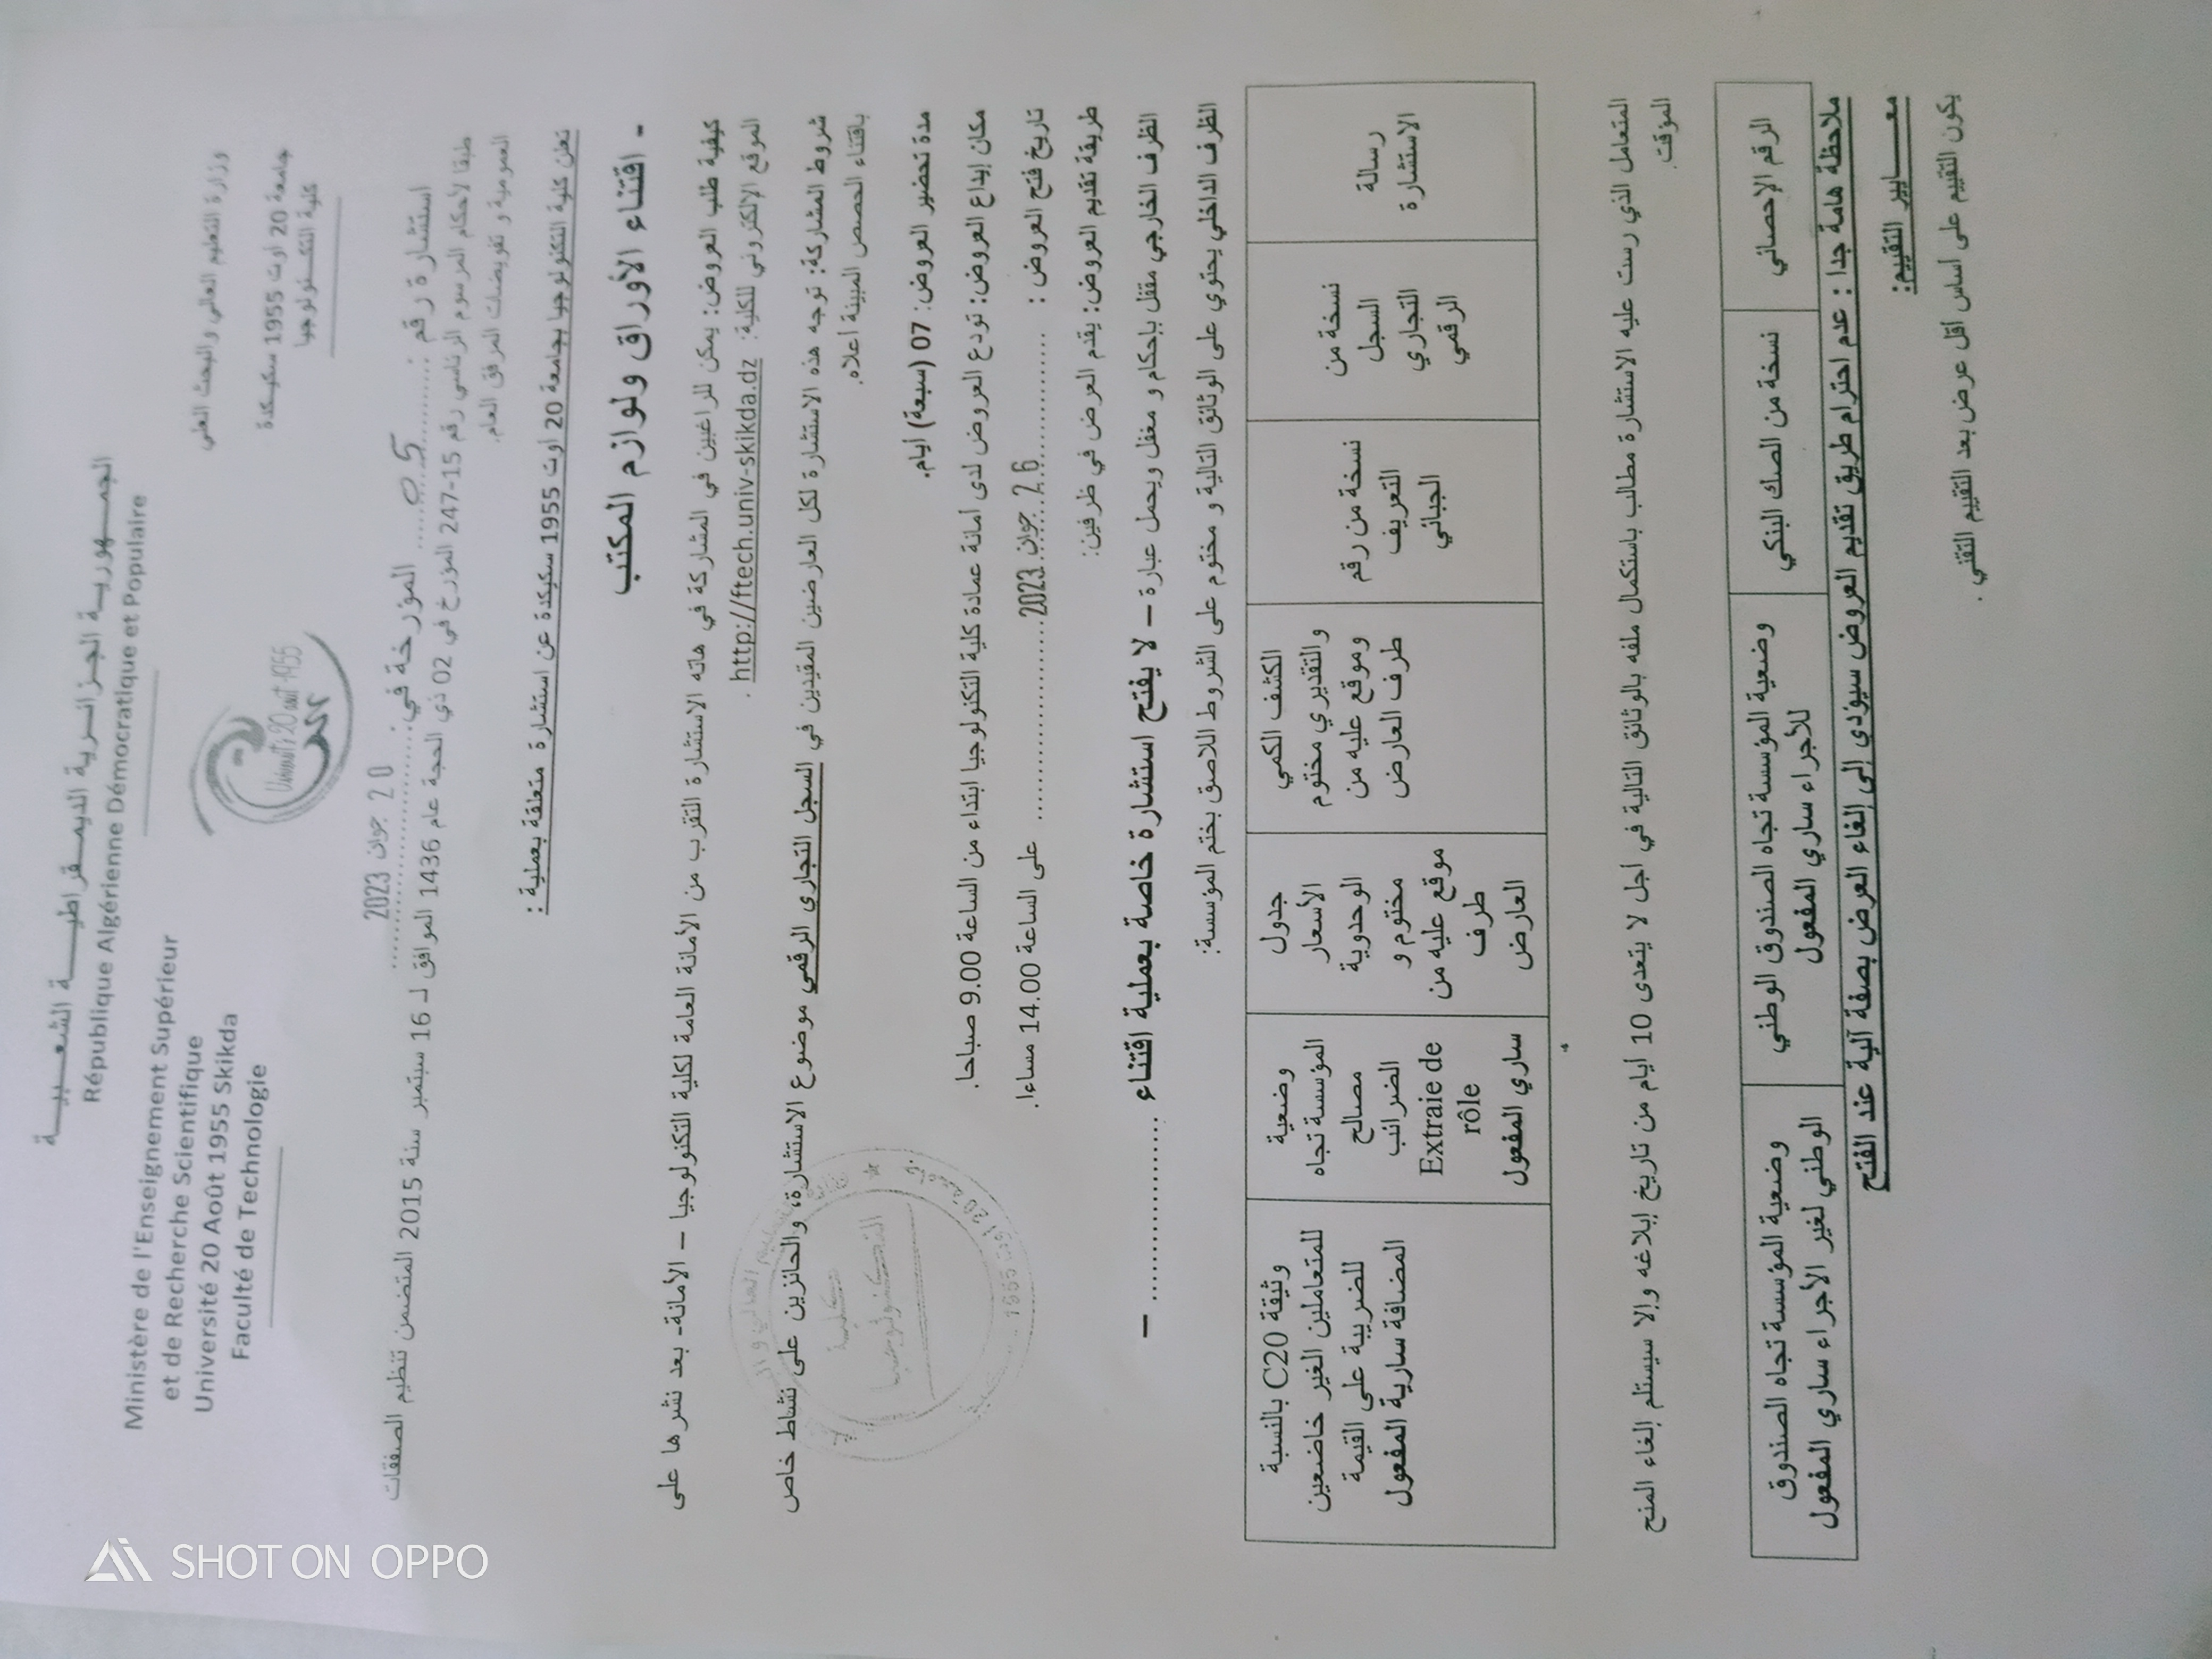 الجمـــهوريـــة الجـــزائـــرية الديمـــقراطيـــــة الشعـــبيـــــة
République Algérienne Démocratique et Populaire
وزارة التعليم العالي والبحث العلمي
Ministère de l'Enseignement Supérieur
et de Recherche Scientifique
جامعة 20 اوت 1955 سكيكدة
Université 20 Août 1955 Skikda
كلية التكنولوجيا
Faculté de Technologie
Université 20 août 1955
استشارة رقم : ........05........ المؤرخة في: 20 جوان 2023
طبقا لأحكام المرسوم الرئاسي رقم 15-247 المؤرخ في 02 ذي الحجة عام 1436 الموافق لـ 16 سبتمبر سنة 2015 المتضمن تنظيم الصفقات
العمومية و تفويضات المرفق العام.
تعلن كلية التكنولوجيا بجامعة 20 اوت 1955 سكيكدة عن استشارة متعلقة بعملية :
- اقتناء الأوراق ولوازم المكتب
كيفية طلب العروض: يمكن للراغبين في المشاركة في هاته الاستشارة التقرب من الأمانة العامة لكلية التكنولوجيا – الأمانة- بعد نشرها على
الموقع الإلكتروني للكلية: http://ftech.univ-skikda.dz .
شروط المشاركة: توجه هذه الاستشارة لكل العارضين المقيدين في السجل التجاري الرقمي موضوع الاستشارة، والحائزين على نشاط خاص
باقتناء الحصص المبينة أعلاه.
مدة تحضير العروض: 07 (سبعة) أيام.
مكان إيداع العروض: تودع العروض لدى أمانة عمادة كلية التكنولوجيا ابتداء من الساعة 9.00 صباحا.
تاريخ فتح العروض : ............26 جوان 2023............ على الساعة 14.00 مساءا.
طريقة تقديم العروض: يقدم العرض في ظرفين:
الظرف الخارجي مقفل بإحكام و مغفل ويحمل عبارة – لا يفتح استشارة خاصة بعملية اقتناء ...................... –
الظرف الداخلي يحتوي على الوثائق التالية و مختوم على الشروط اللاصق بختم المؤسسة:
رسالة
الاستشارة
نسخة من
السجل
التجاري
الرقمي
نسخة من رقم
التعريف
الجبائي
الكشف الكمي
والتقديري مختوم
وموقع عليه من
طرف العارض
جدول
الأسعار
الوحدوية
مختوم و
موقع عليه من
طرف
العارض
وضعية
المؤسسة تجاه
مصالح
الضرائب
Extraie de
rôle
ساري المفعول
وثيقة C20 بالنسبة
للمتعاملين الغير خاضعين
للضريبة على القيمة
المضافة سارية المفعول
المتعامل الذي رست عليه الاستشارة مطالب باستكمال ملفه بالوثائق التالية في اجل لا يتعدى 10 ايام من تاريخ إبلاغه وإلا سيستلم إلغاء المنح
المؤقت.
الرقم الاحصائي
نسخة من الصك البنكي
وضعية المؤسسة تجاه الصندوق الوطني
للأجراء ساري المفعول
وضعية المؤسسة تجاه الصندوق
الوطني لغير الأجراء ساري المفعول
ملاحظة هامة جدا : عدم احترام طريق تقديم العروض سيؤدي إلى إلغاء العرض بصفة آلية عند الفتح
معـــــايير التقييم:
يكون التقييم على اساس أقل عرض بعد التقييم التقني .
كلية
التكنولوجيا
SHOT ON OPPO